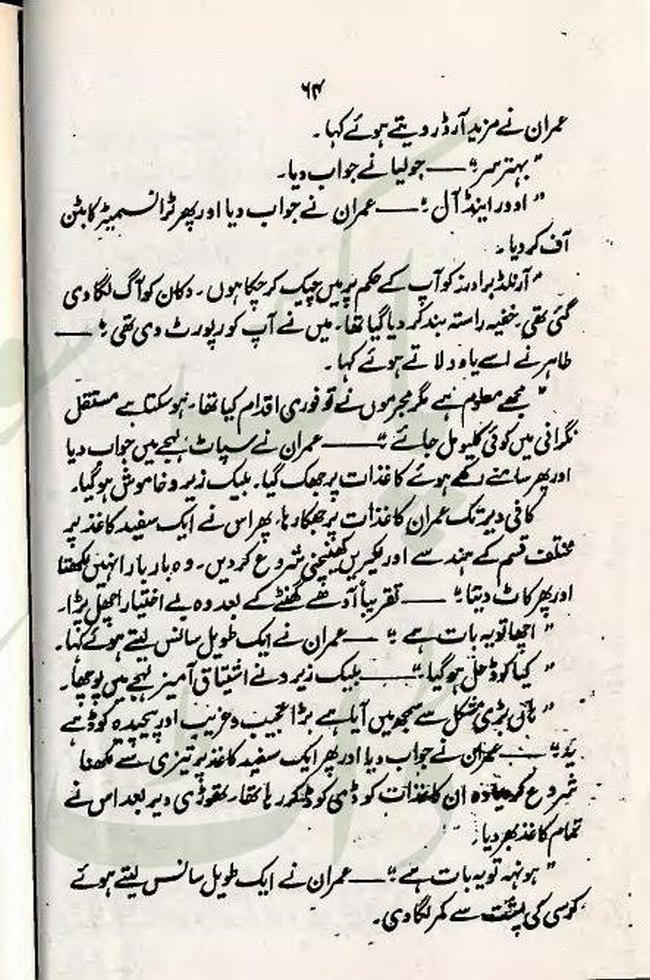 ۶۴
عمران نے مزید آرڈر دیتے ہوئے کہا۔
"بہتر سر"۔۔۔ جولیا نے جواب دیا۔
"اوور اینڈ آل"۔۔۔ عمران نے جواب دیا اور پھر ٹرانسمیٹر کا بٹن
آف کر دیا۔
"آرنلڈ برادرز کو آپ کے حکم پر میں چیک کر چکا ہوں۔ دکان کو آگ لگا دی
گئی تھی۔ خفیہ راستہ بند کر دیا گیا تھا۔ میں نے آپ کو رپورٹ دی تھی"۔۔۔
طاہر نے اسے یاد دلاتے ہوئے کہا۔
"مجھے معلوم ہے مگر مجرموں نے تو فوری اقدام کیا تھا۔ ہو سکتا ہے مستقل
نگرانی میں کوئی کلیو مل جائے"۔۔۔ عمران نے سپاٹ لہجے میں جواب دیا
اور پھر سامنے رکھے ہوئے کاغذات پر جھک گیا۔ بلیک زیرو خاموش ہو گیا۔
کافی دیر تک عمران کاغذات پر جھکا رہا، پھر اس نے ایک سفید کاغذ پر
مختلف قسم کے ہندسے اور لکیریں کھینچنی شروع کر دیں۔ وہ بار بار انہیں لکھتا
اور پھر کاٹ دیتا۔۔۔ تقریباً آدھے گھنٹے کے بعد وہ بے اختیار اچھل پڑا۔
"اچھا تو یہ بات ہے"۔۔۔ عمران نے ایک طویل سانس لیتے ہوئے کہا۔
"کیا کوڈ حل ہو گیا"۔۔۔ بلیک زیرو نے اشتیاق آمیز لہجے میں پوچھا۔
"ہاں بڑی مشکل سے سمجھ میں آیا ہے بڑا عجیب و غریب اور پیچیدہ کوڈ ہے
یہ"۔۔۔ عمران نے جواب دیا اور پھر ایک سفید کاغذ پر تیزی سے لکھنا
شروع کر دیا وہ ان کاغذات کو ڈی کوڈ کر رہا تھا۔ تھوڑی دیر بعد اس نے
تمام کاغذ بھر دیا۔
"ہونہہ تو یہ بات ہے"۔۔۔ عمران نے ایک طویل سانس لیتے ہوئے
کرسی کی پشت سے کمر لگا دی۔